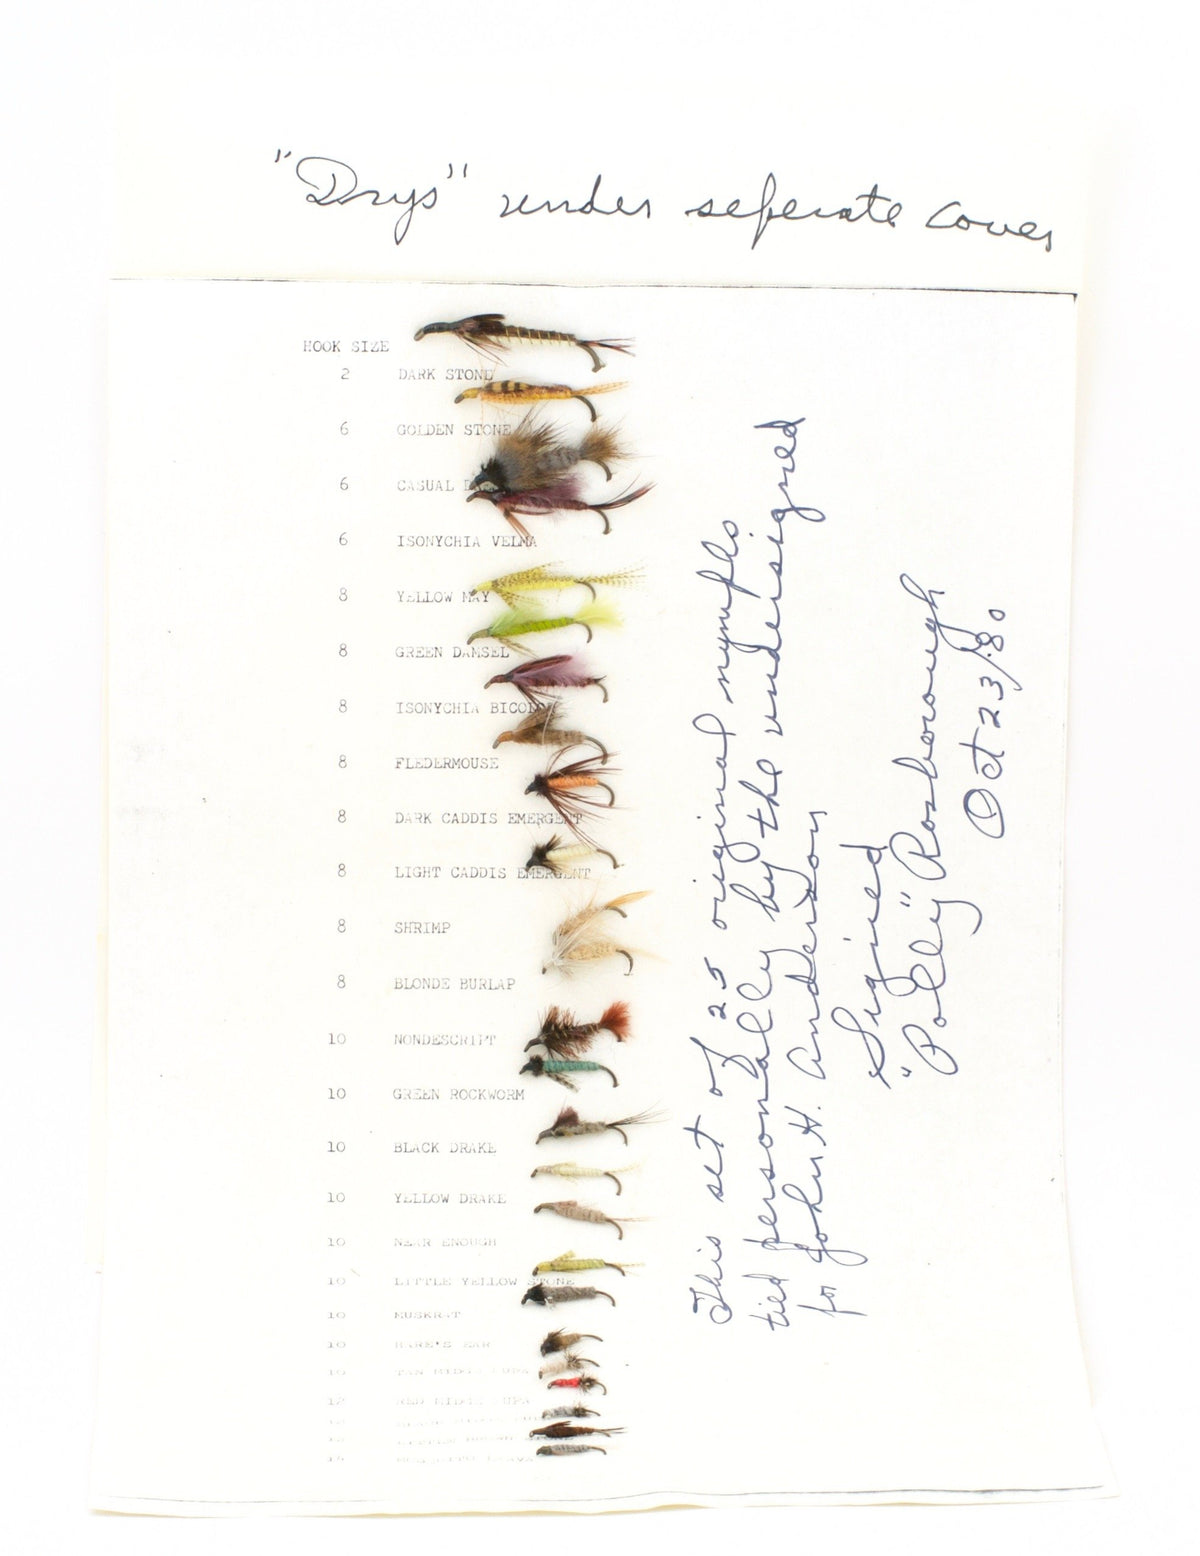 "Drys" under seperate cover
HOOK SIZE
2 DARK STONE
6 GOLDEN STONE
6 CASUAL
6 ISONYCHIA VELMA
8 YELLOW MAY
8 GREEN DAMSEL
8 ISONYCHIA BICOLOR
8 FLEDERMOUSE
8 DARK CADDIS EMERGENT
8 LIGHT CADDIS EMERGENT
8 SHRIMP
8 BLONDE BURLAP
10 NONDESCRIPT
10 GREEN ROCKWORM
10 BLACK DRAKE
10 YELLOW DRAKE
10 NEAR ENOUGH
10 LITTLE YELLOW STONE
10 MUSKRAT
10 HARE'S EAR
10 TAN MIDGE PUPA
12 RED MIDGE PUPA
This set of 25 original nymphs
tied personally by the undersigned
for John H. Anderson
Signed
"Polly" Rosborough
Oct 23/80